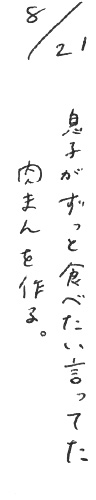 8/21
息子がずっと食べたい言ってた
肉まんを作る。